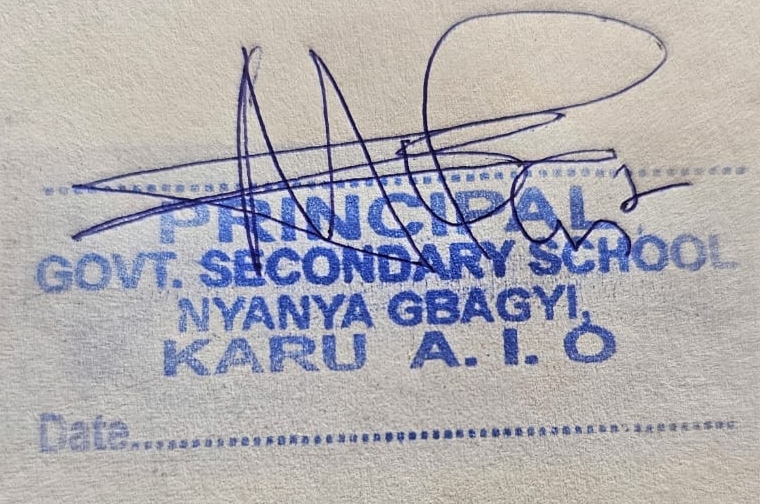 PRINCIPAL,
GOVT. SECONDARY SCHOOL
NYANYA GBAGYI,
KARU A. I. O
Date